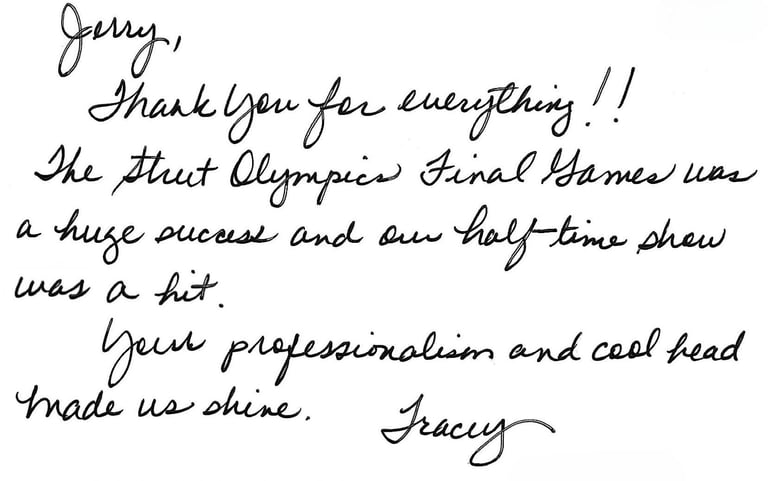 Jerry,
Thank You for everything!!
The Street Olympics Final Games was
a huge success and our half-time show
was a hit.
Your professionalism and cool head
made us shine. Tracey